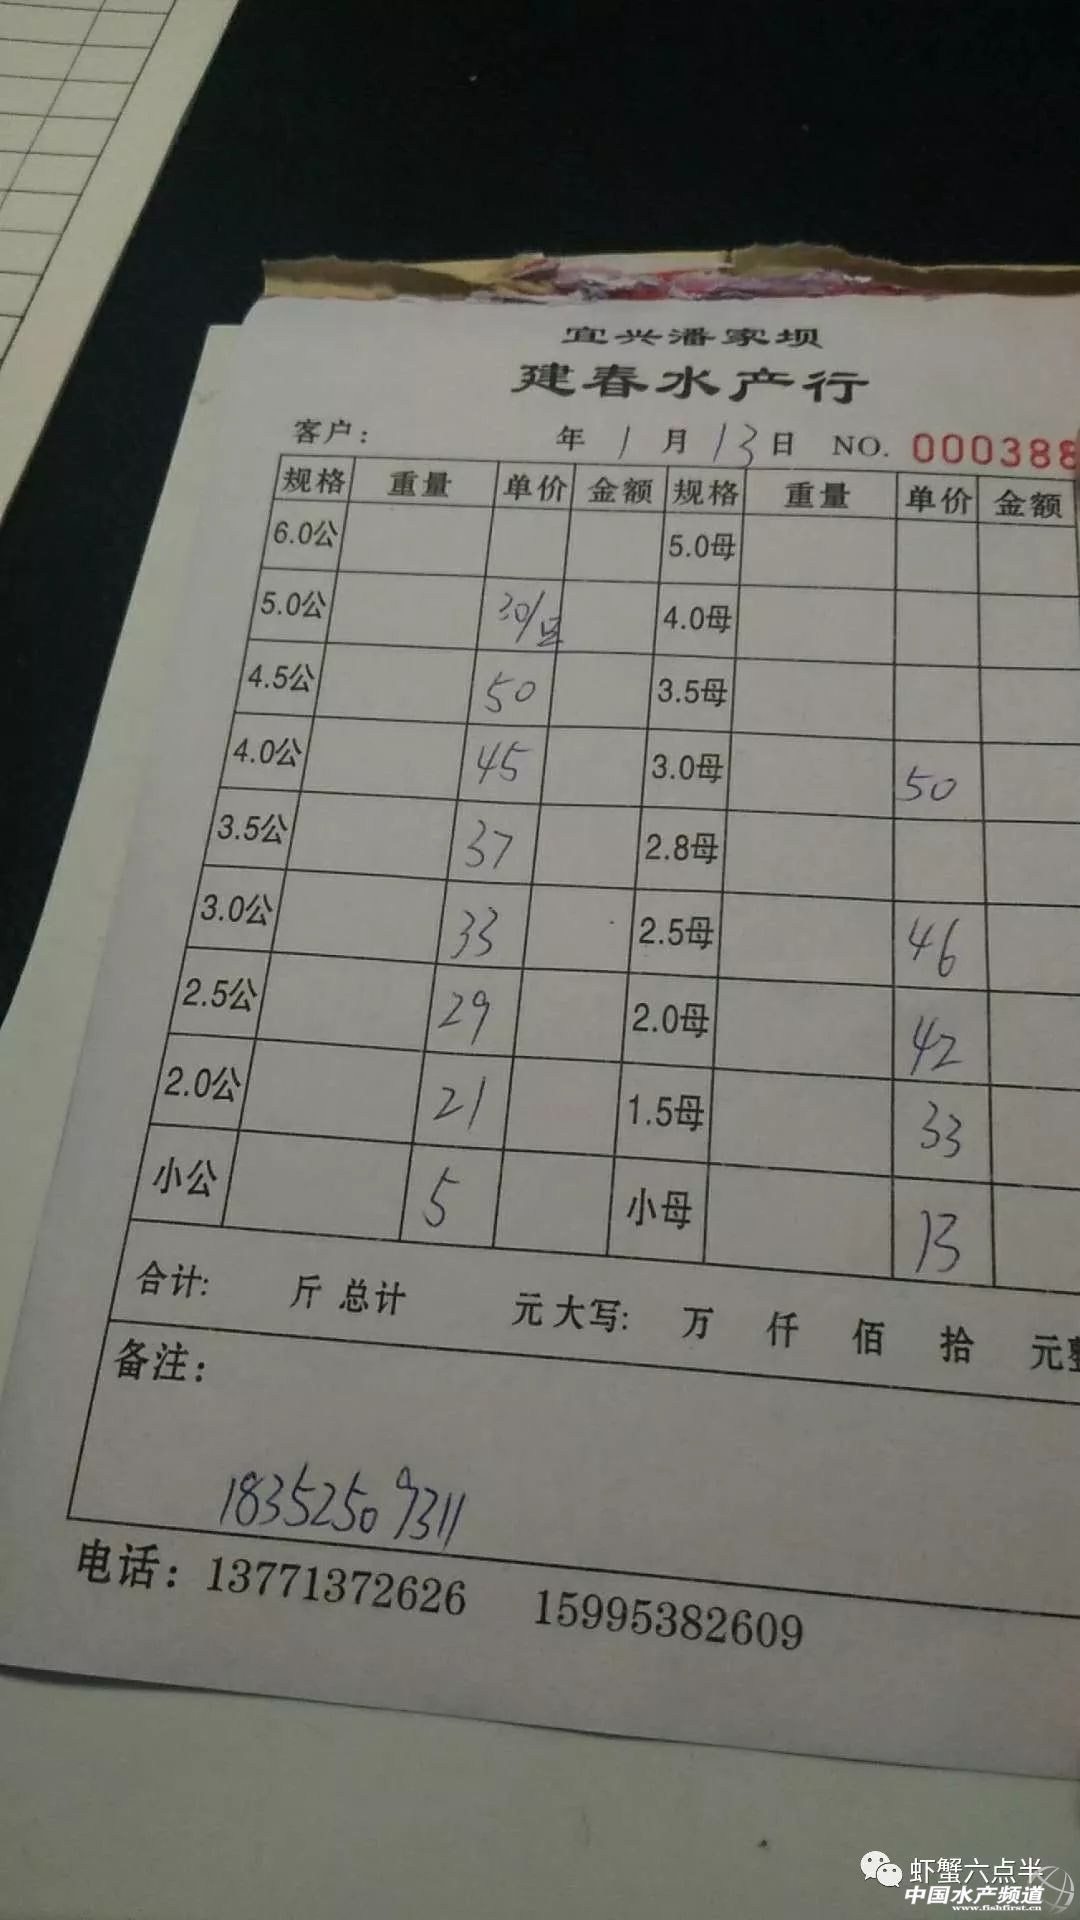 宜兴潘家坝
建春水产行
客户： 年 1 月 13 日 NO. 000388
规格 重量 单价 金额 规格 重量 单价 金额
6.0公 5.0母
5.0公 30/ 4.0母
4.5公 50 3.5母
4.0公 45 3.0母 50
3.5公 37 2.8母
3.0公 33 2.5母 46
2.5公 29 2.0母 42
2.0公 21 1.5母 33
小公 5 小母 13
合计: 斤 总计 元 大写: 万 仟 佰 拾 元整
备注：
18352509311
电话：13771372626 15995382609
虾蟹六点半
中国水产频道
www.fishfirst.cn